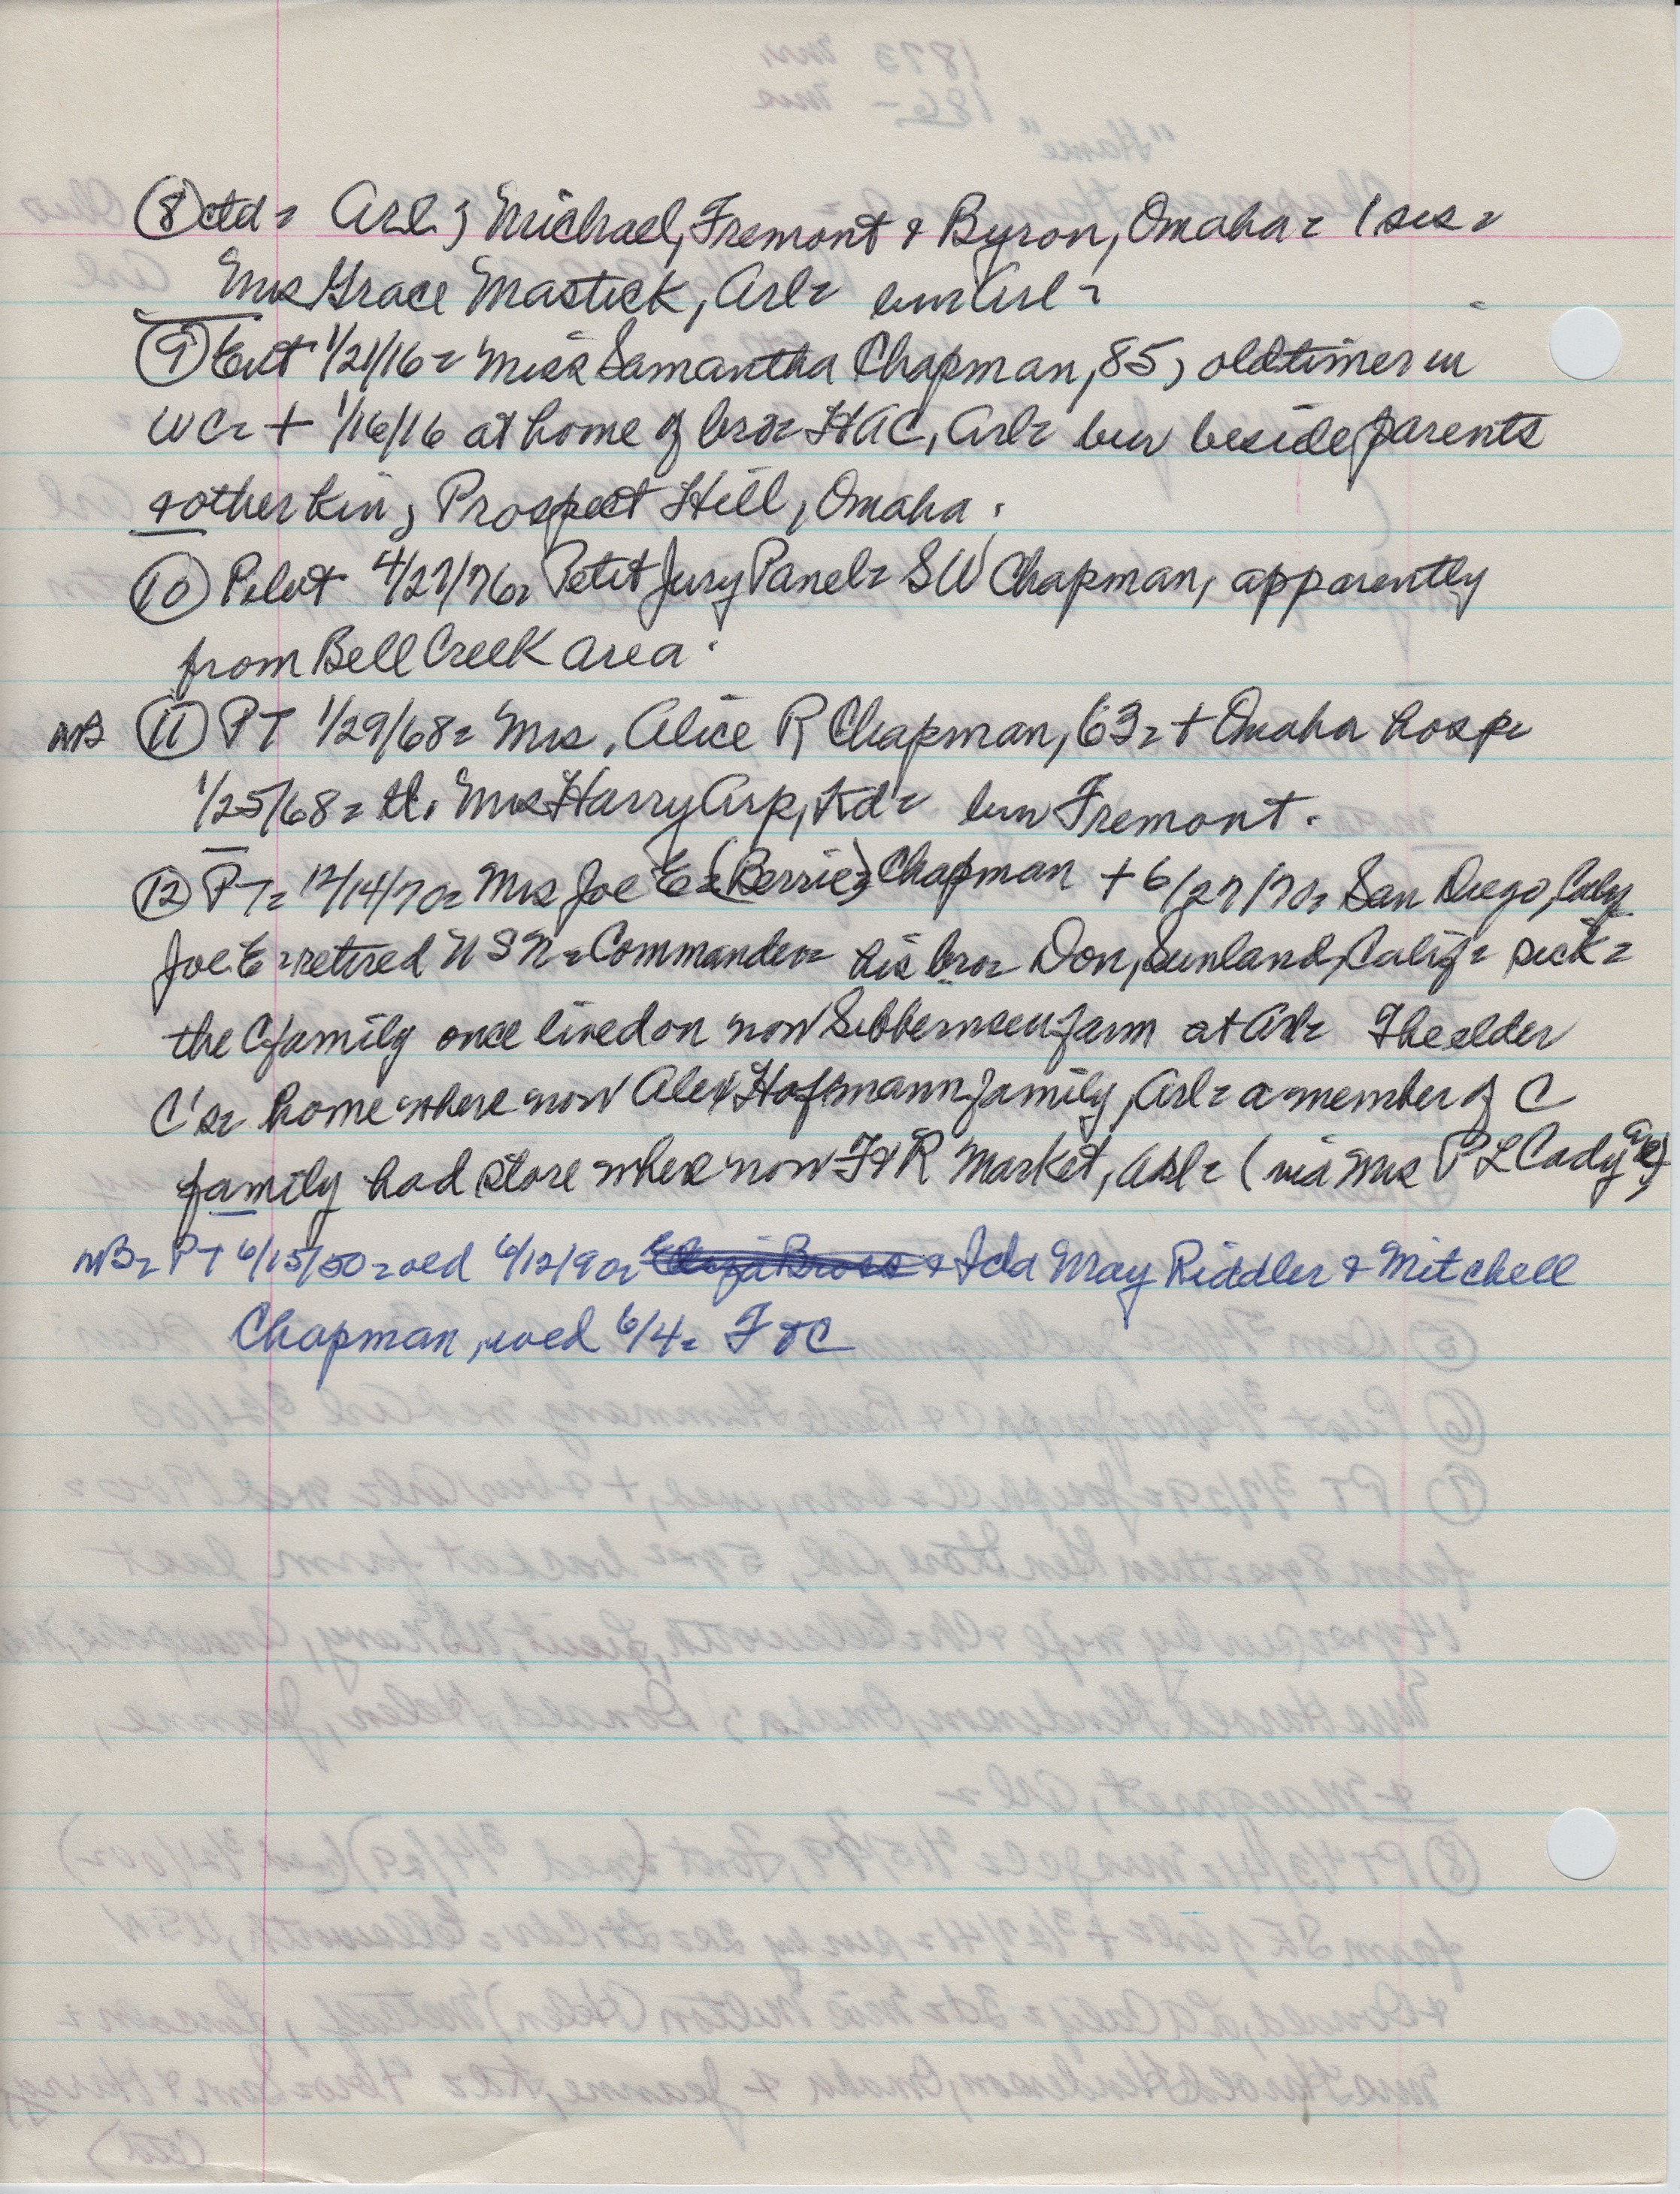 (8) ctd = Arl; Michael, Fremont & Byron, Omaha = 1 sis =
Mrs Grace Mastick, Arl = bur Arl =
(9) Ent 1/21/16 = Miss Samantha Chapman, 85, oldtimer in
WC = + 1/16/16 at home of bro = HAC, Arl = bur beside parents
& other kin, Prospect Hill, Omaha.
(10) Pilot 4/27/76 = Petit Jury Panel = SW Chapman, apparently
from Bell Creek area.
NB (11) PT 1/29/68 = Mrs. Alice R Chapman, 63 = + Omaha hosp =
1/25/68 = Mrs Harry Arp, Kd = bur Fremont.
(12) PT = 12/14/70 = Mrs Joe E = (Berrie) Chapman + 6/27/70 = San Diego,
Joe E = retired USN = Commander = his bro = Don, Sunland, Calif = sick =
the C family once lived on now Sibbernsen farm at Arl = The elder
C's = home where now Alex Hoffmann family, Arl = a member of C
family had store where now F & R Market, Arl = (via Mrs P L Cady
NB = PT 6/15/50 = old 6/12/90 = & Ida May Riddler & Mitchell
Chapman, wed 6/4 = F & C